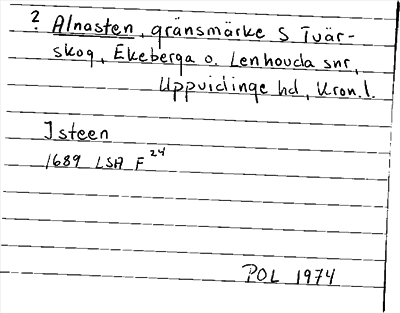 ? Alnasten, gränsmärke S Tvär-
skog, Ekeberga o. Lenhovda snr,
Uppvidinge hd, Kron.l.
Isteen
1689 LSA F 24
POL 1974